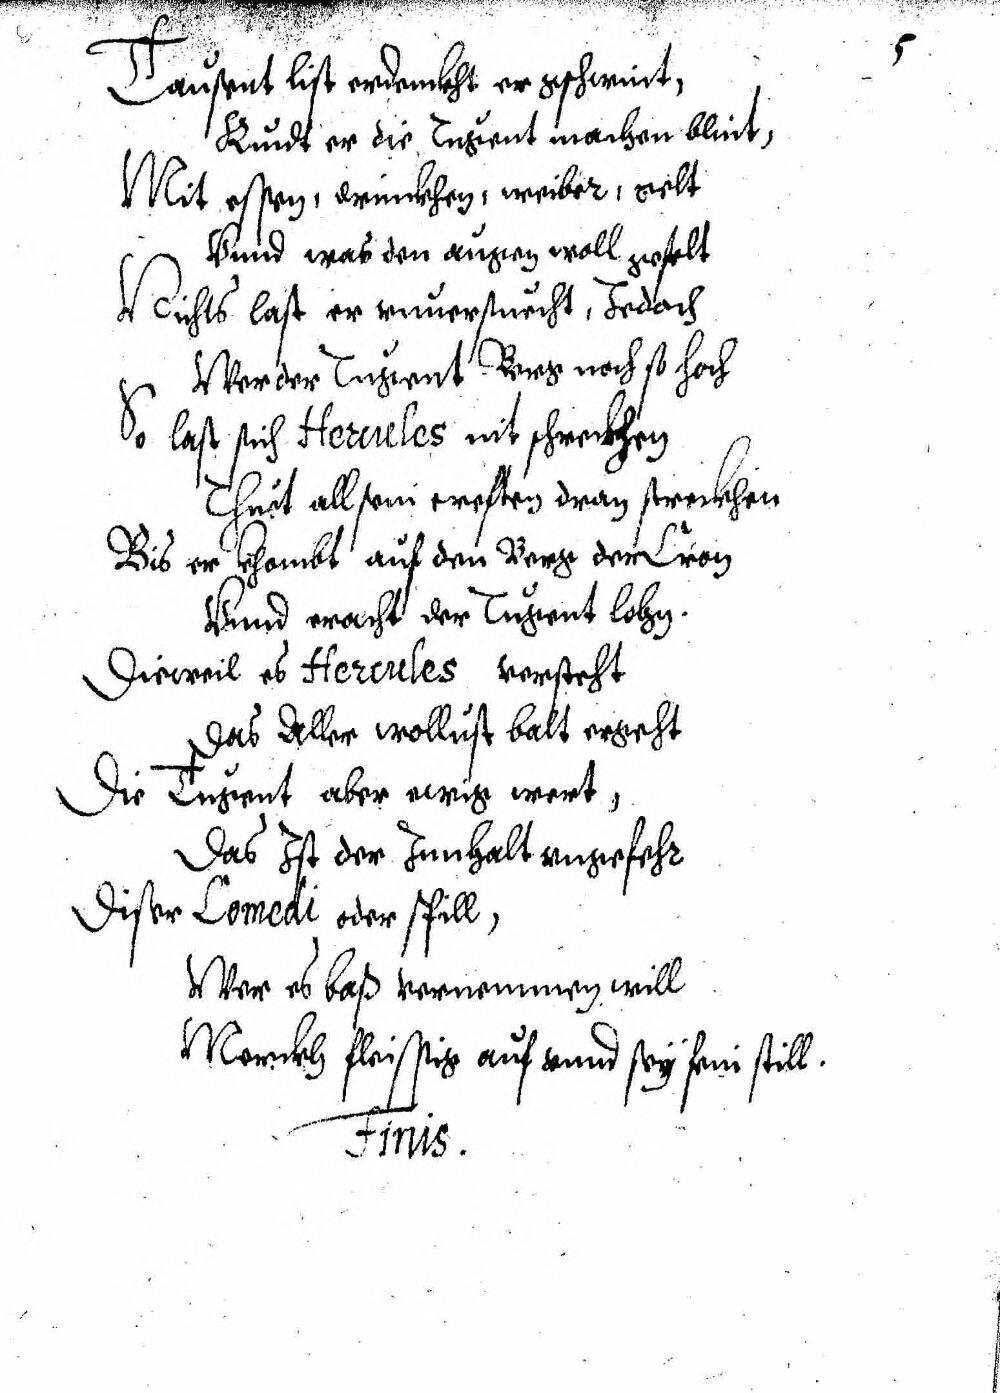 5
Tausent list erdenckht er geschwint,
Kundt er die Tugent machen blint,
Mit essen, drinckhen, weiber, gelt
Vnnd was den augen woll gefelt
Nichts last er vnuersuecht, Jedoch
Wer der Tugent Berg noch so hoch
So last sich Hercules nit schreckhen
Thuet all sein creften dran streckhen
Bis er khombt auf den Berg der Cron
Vnnd eracht der Tugent lohn.
Dieweil es Hercules versteht
Das Aller wollust balt ergeht
Die Tugent aber ewig wert,
Das Ist der Innhalt vngefehr
Diser Comedi oder spill,
Wer es baß vernemmen will
Merckh fleissig auf vnnd seÿ fein still.
Finis.